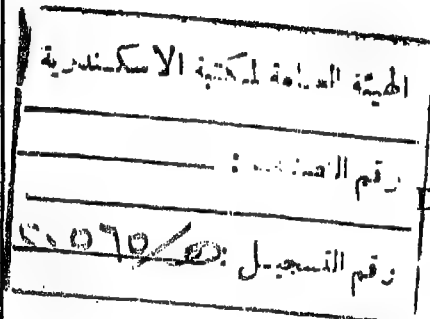 الهيئة العامة لمكتبة الاسكندرية
رقم التصنيف :
رقم التسجيل :